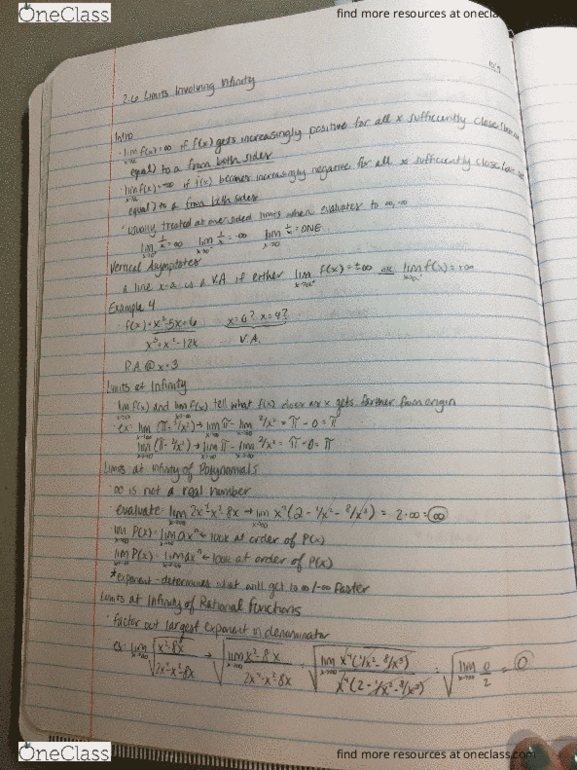 OneClass
find more resources at oneclass
2.6 Limits Involving Infinity
Intro
· lim f(x)=∞ if f(x) gets increasingly positive for all x sufficiently close
equal) to a from both sides
· lim f(x)=-∞ if f(x) becomes increasingly negative for all x sufficiently close
equal) to a from both sides
· usually treated at one sided limits when evaluates to ∞,-∞
lim 1/x = ∞ lim 1/x = -∞ lim 1/x = DNE
Vertical Asymptotes
a line x=a is a V.A if either lim f(x)=±∞ or lim f(x)=±∞
Example 4
· f(x)= x²-5x+6 x=0? x=4?
x³+x²-12x V.A.
R.A @ x=3
Limits at Infinity
lim f(x) and lim f(x) tell what f(x) does as x gets farther from origin
· ex: lim (π-2/x²) → lim π - lim 2/x² = π - 0 = π
lim (π-2/x²) → lim π - lim 2/x² = π - 0 = π
Limits at Infinity of Polynomials
· ∞ is not a real number
· evaluate lim 2x⁴-x²-8x → lim x⁴(2-1/x²-8/x³) = 2·∞ = ∞
lim P(x) = lim axⁿ ← look at order of P(x)
lim P(x) = lim axⁿ ← look at order of P(x)
*exponent - determines what will get to ∞/-∞ faster
Limits at Infinity of Rational Functions
· factor out largest exponent in denominator
ex: lim √(x²-8x / 2x⁴-x²-8x) → √(lim x²-8x / 2x⁴-x²-8x) = √(lim x⁴(1/x²-8/x³) / x⁴(2-1/x²-8/x³)) = √(lim 0/2) = 0
OneClass
find more resources at oneclass.com